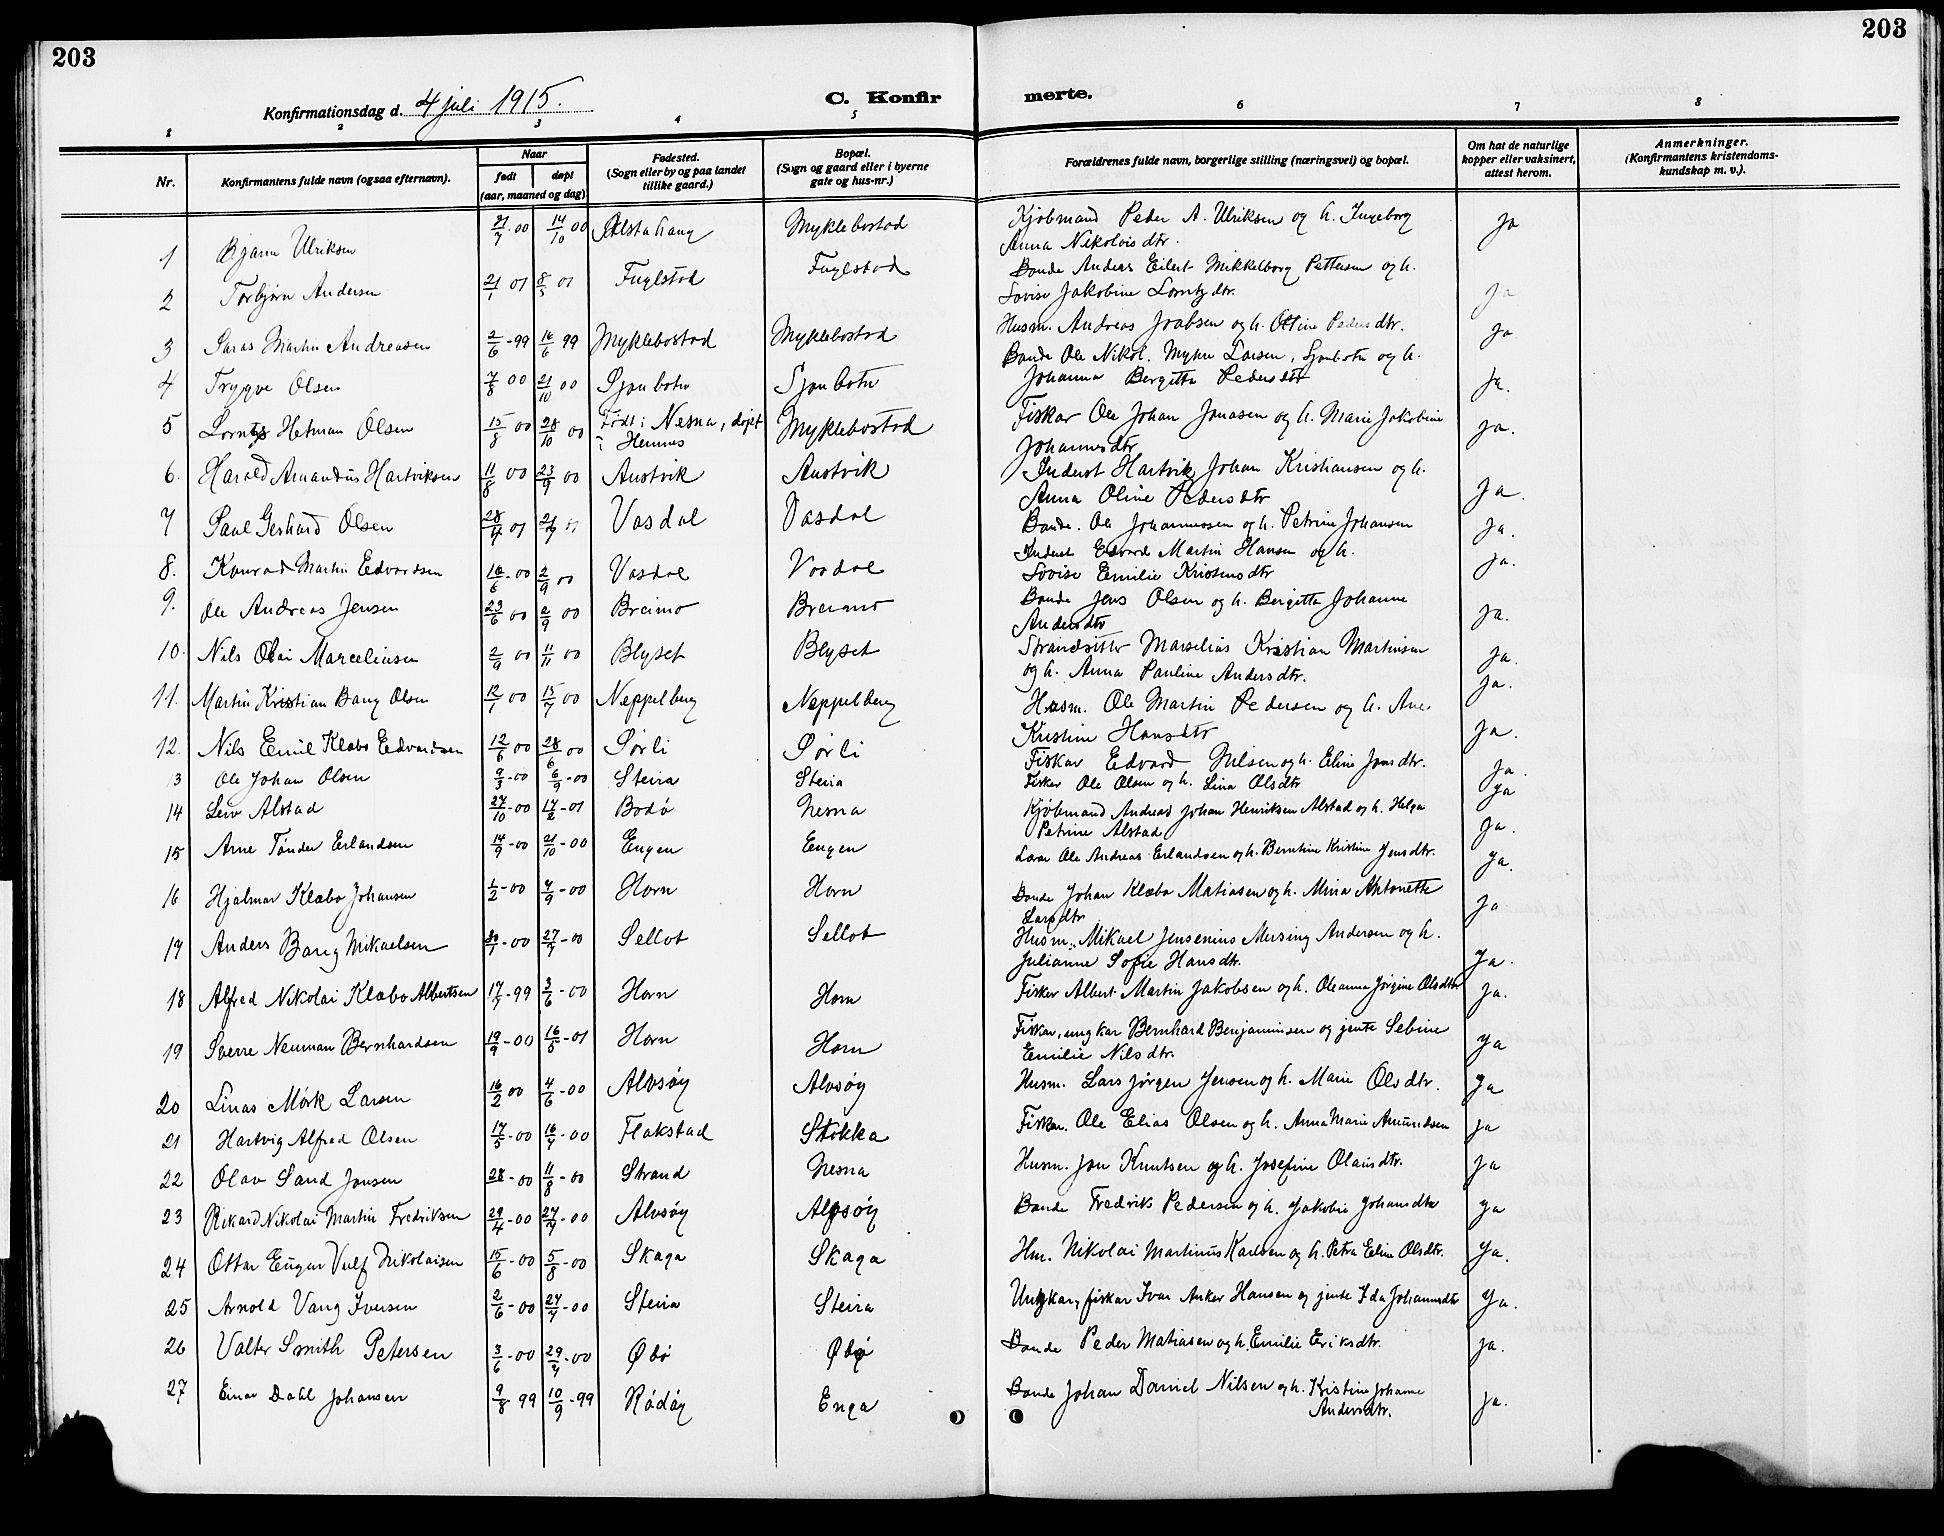 203
203
Konfirmationsdag d. 4 juli 1915.
C. Konfir
merte.
1 2 3 4 5 6 7 8
Nr.
Konfirmantens fulde navn (ogsaa efternavn).
Naar
født
døpt
(aar, maaned og dag)
Fødested.
(Sogn eller by og paa landet
tillike gaard.)
Bopæl.
(Sogn og gaard eller i byerne
gate og hus-nr.)
Forældrenes fulde navn, borgerlige stilling (næringsvei) og bopæl.
Om hat de naturlige
kopper eller vaksinert,
attest herom.
Anmerkninger.
(Konfirmantens kristendoms-
kundskap m. v.).
1 Bjarne Ulriksen 21/7-00 14/10 00 Alstahaug Myklebostad Kjøbmand Peder A. Ulriksen og h. Ingeborg ja
Anna Nikolaisdtr.
2 Torbjørn Andersen 21/1 01 8/5 01 Fuglstad Fuglstad Bonde Anders Eilert Mikkelborg Pettersen og h.
Lovise Jakobine Lorntzdtr. ja
3 Martin Andreasen 2/6-99 16/6 99 Myklebostad Myklebostad Husm. Andreas og h. Oline Pedersdtr. ja
4 Trygve Olsen 7/8 00 21/10 00 Sjonbotn Sjonbotn Bonde Ole Nikol. Larsen, Sjonbotn og h.
Johanna Bergitta Pedersdtr ja.
5 Lorntz Hetman Olsen 15/8 00 28/10 00 Født i Nesna, døpt i Hemnes Myklebostad Fiskar Ole Johan Jonasen og h. Marie Jakobine ja.
Johannesdtr
6. Harald Amandus Hartviksen 11/8 00 23/9 00 Austvik Austvik Inderst Hartvik Johan Kristiansen og h.
Anna Oline Pedersdtr ja.
7 Paul Gerhard Olsen 28/4 01 21/7 01 Vasdal Vasdal Bonde. Ole Johannessen og h. Petrine Johansen ja.
8. Konrad Martin Edvardsen 16/6-00 2/9 00 Vasdal Vasdal Inderst Edvard Martin Hansen og h. ja.
Lovise Emilie Kristensdtr
9. Ole Andreas Jensen 23/6 00 2/9 00 Breimo Breimo Bonde Jens Olsen og h. Bergitta Johanne ja.
Andersdtr
10. Nils Olai Marceliusen 2/9 00 11/11 00 Blyset Blyset Strandsitter Marselius Kristian Martinsen ja.
og h. Anna Pauline Andersdtr.
11. Martin Kristian Bang Olsen 12/1 00 15/7 00 Neppelberg Neppelberg Husm. Ole Martin Pedersen og h. Ane ja.
Kristine Hansdtr ja.
12. Nils Emil Klæbo Edvardsen 12/6 00 28/6 00 Sørli Sørli Fiskar Edvard Nilsen og h. Eline Jonsdtr. ja.
13 Ole Johan Olsen 9/3-00 6/9-00 Steira Steira Fisker Ole Olsen og h. Lina Olsdtr ja
14 Leiv Alstad 27/10-00 17/2-01 Bodø Nesna Kjøbmand Andreas Johan Henriksen Alstad og h. Helga
Petrine Alstad ja.
15 Arne Tønder Erlandsen 14/9-00 21/10-00 Engen Engen Lærer Ole Andreas Erlandsen og h. Berntine Kristine Jensdtr. ja.
16 Hjalmar Klæbo Johansen 1/2-00 9/9-00 Horn Horn Bonde Johan Klæbo Matiasen og h. Mina Antonette
Larsdtr ja
17 Anders Bang Mikaelsen 30/1-00 27/7-00 Sellot Sellot Husm. Mikael Jensenius Mersing Andersen og h.
Julianne Sofie Hansdtr. Ja.
18 Alfred Nikolai Klæbo Albertsen 17/7-99 3/6-00 Horn Horn Fisker Albert Martin Jakobsen og h. Oleanna Jørgine Olsdtr ja.
19 Sverre Neuman Bernhardsen 19/9-00 16/5-01 Horn Horn Fiskar, ungkar Bernhard Benjaminsen og jente Sebine
Emilie Nilsdtr. ya
20 Linas Mørk Larsen 16/2 00 4/6-00 Alvsøy Alvsøy Husm. Lars Jørgen Jensen og h. Marie Olsdtr. Ja
21 Hartvig Alfred Olsen 17/5-00 16/7-00 Flakstad Stokka Fiskar. Ole Elias Olsen og h. Anna Marie Amundsen ja
22 Olav Sand Jonsen 28-00 11/8-00 Strand Nesna Husm. Jon Knutsen og h. Josefine Olausdtr. ja
23 Rikard Nikolai Martin Fredriksen 29/4-00 27/7-00 Alvsøy Alvsøy Bonde Fredrik Pedersen og h. Jakobie Johansdtr ja
24 Ottar Eugen Vulf Nikolaisen 15/6-00 5/8-00 Skaga Skaga Hm. Nikolai Martinus Karlsen og h. Petra Eline Olsdtr. Ja.
25 Arnold Vang Iversen 2/6-00 27/7-00 Steira Steira Ungkar, fiskar Ivar Anker Hansen og jente Ida Johannesdtr Ja.
26 Valter Smith Petersen 3/6-00 29/7-00 Øbø Øbø Bonde Peder Matiasen og h. Emilie Eriksdtr. ja.
27 Einar Dahl Johansen 9/8 99 10/9-99 Rødøy Enga Bonde Johan Daniel Nilsen og h. Kristine Johanne
Andersdtr. ja.